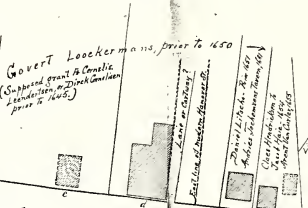 Govert Loockermans, prior to 1650
(Supposed grant to Cornelis
Leendertsen, or Dirck Cornelisen
prior to 1645.)
Lane or Cartway?
East line of modern Hanover St.
Daniel Litscho - Prior 1651
Andries Jochemsen Tavern, 1651
Claes Hendricksen to
Jacob
c
d